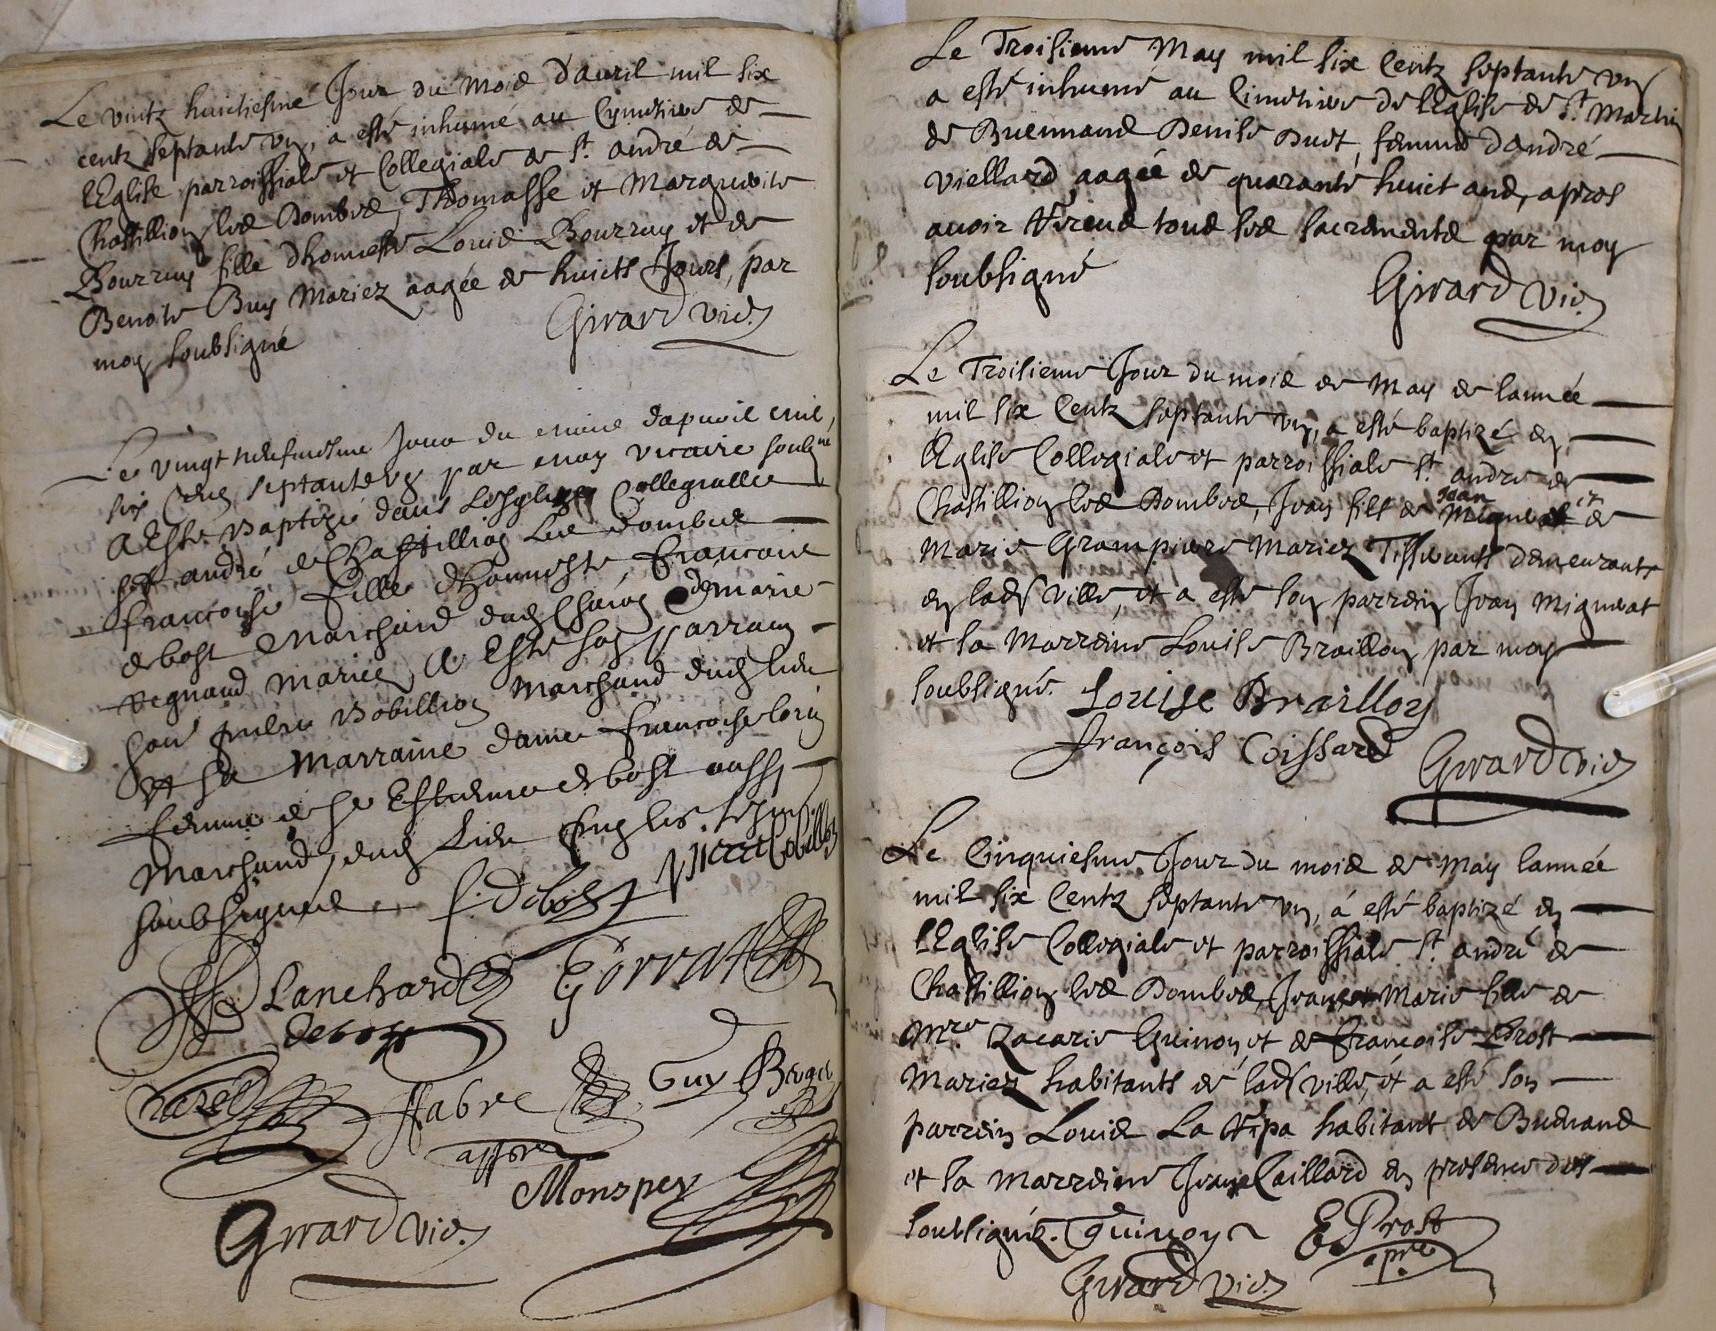 Le vintz huictiesme Jour du Mois d'auril mil six
centz septante vn, a esté inhumé au Cymetiere de
lEglise parroissiale et Collegiale de St. andré de
Chastillion les Dombes, Thomasse et Marguerite
Bourruy fille dhoneste Louis Bourruy et de
Benoite Buy Mariez aagée de huicts Jours, par
moy soubsigné
Girard vic.
Le vingt neufuiesme Jour du moins dapvril mil
six Cens septante vn par moy vicaire soubne
A Este Baptizé dans Lesglize Collegialle
St andré de Chastillion Les Dombes
francoise fille dhonneste francois
debost Marchand dud Chastion & marie
Regnaud mariez, A Este son parrain
hone pierre Bobillion Marchand dud lieu
et sa Marraine dame francoise
femme de Sr Estienne debost aussy
Marchand, dud Lieu
soubsignez
f. Debost pierre Bobillion
Lanchard Gorrat
Debost
Fabre Guy
Monspey
Girard vic.
Le Troisieme May mil six Centz septante vn
a esté inhumé au Cimetiere de lEglise de St. Martin
de Buennand Denise Duet, femme dandré
Viellard aagée de quarante huict ans, apres
auoir Receus tous les sacrements par moy
soubsigné
Girard vic.
Le Troisieme Jour du mois de May de lannée
mil six Centz septante vn, a esté baptizé en
lEglise Collegiale et parroissiale St. andre de
Chastillion les Dombes, Jean fils de Jean Migneat et de
Marie Grampiere Mariez Tisserants demeurants
en lad ville, et a esté son parrein Jean Migneat
et la Marreine Louise Braillon par moy
soubsigné.
Louise Braillon
François Coissard
Girard vic
Le Cinquiesme Jour du mois de May lannée
mil six Centz septante vn, á esté baptizé en
lEglise Collegiale et parroissiale St. andré de
Chastillion les Dombes, Jeanne Marie fille de
Mre. Zacarie Guinon et de françoise Prost
Mariez habitants de lad ville, et a esté son
parrein Louis La Ripa habitant de Buenand
et la marreine Jeanne Caillard en presence des
soubsignéz. Guinon E Prost
Girard vic.